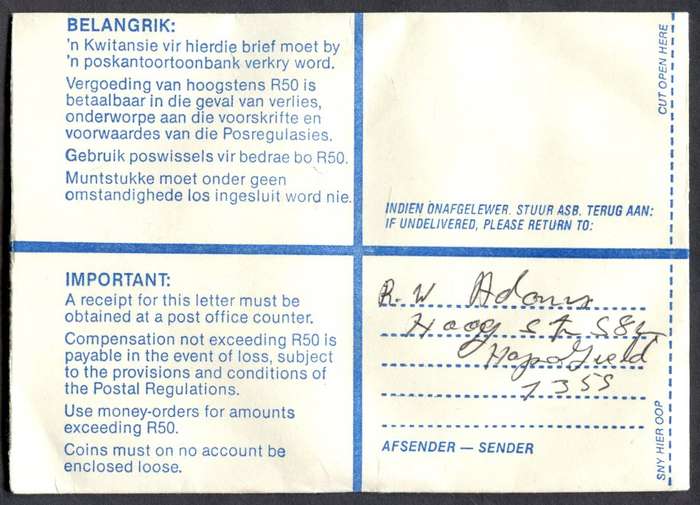 BELANGRIK:
'n Kwitansie vir hierdie brief moet by
'n poskantoortoonbank verkry word.
Vergoeding van hoogstens R50 is
betaalbaar in die geval van verlies,
onderworpe aan die voorskrifte en
voorwaardes van die Posregulasies.
Gebruik poswissels vir bedrae bo R50.
Muntstukke moet onder geen
omstandighede los ingesluit word nie.
IMPORTANT:
A receipt for this letter must be
obtained at a post office counter.
Compensation not exceeding R50 is
payable in the event of loss, subject
to the provisions and conditions of
the Postal Regulations.
Use money-orders for amounts
exceeding R50.
Coins must on no account be
enclosed loose.
CUT OPEN HERE
INDIEN ONAFGELEWER. STUUR ASB. TERUG AAN:
IF UNDELIVERED, PLEASE RETURN TO:
R. W Adams
Hoog str
7355
AFSENDER — SENDER
SNY HIER OOP